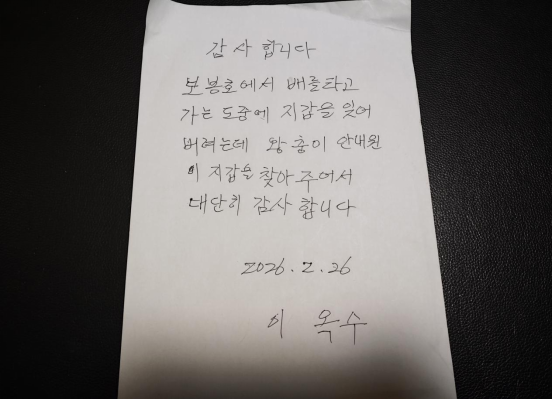 감사합니다
보봉호에서 배를타고
가는 도중에 지갑을 잊어
버려는데 왕충이 안내원
이 지갑을 찾아 주어서
대단히 감사합니다
2026.2.26
이 옥수